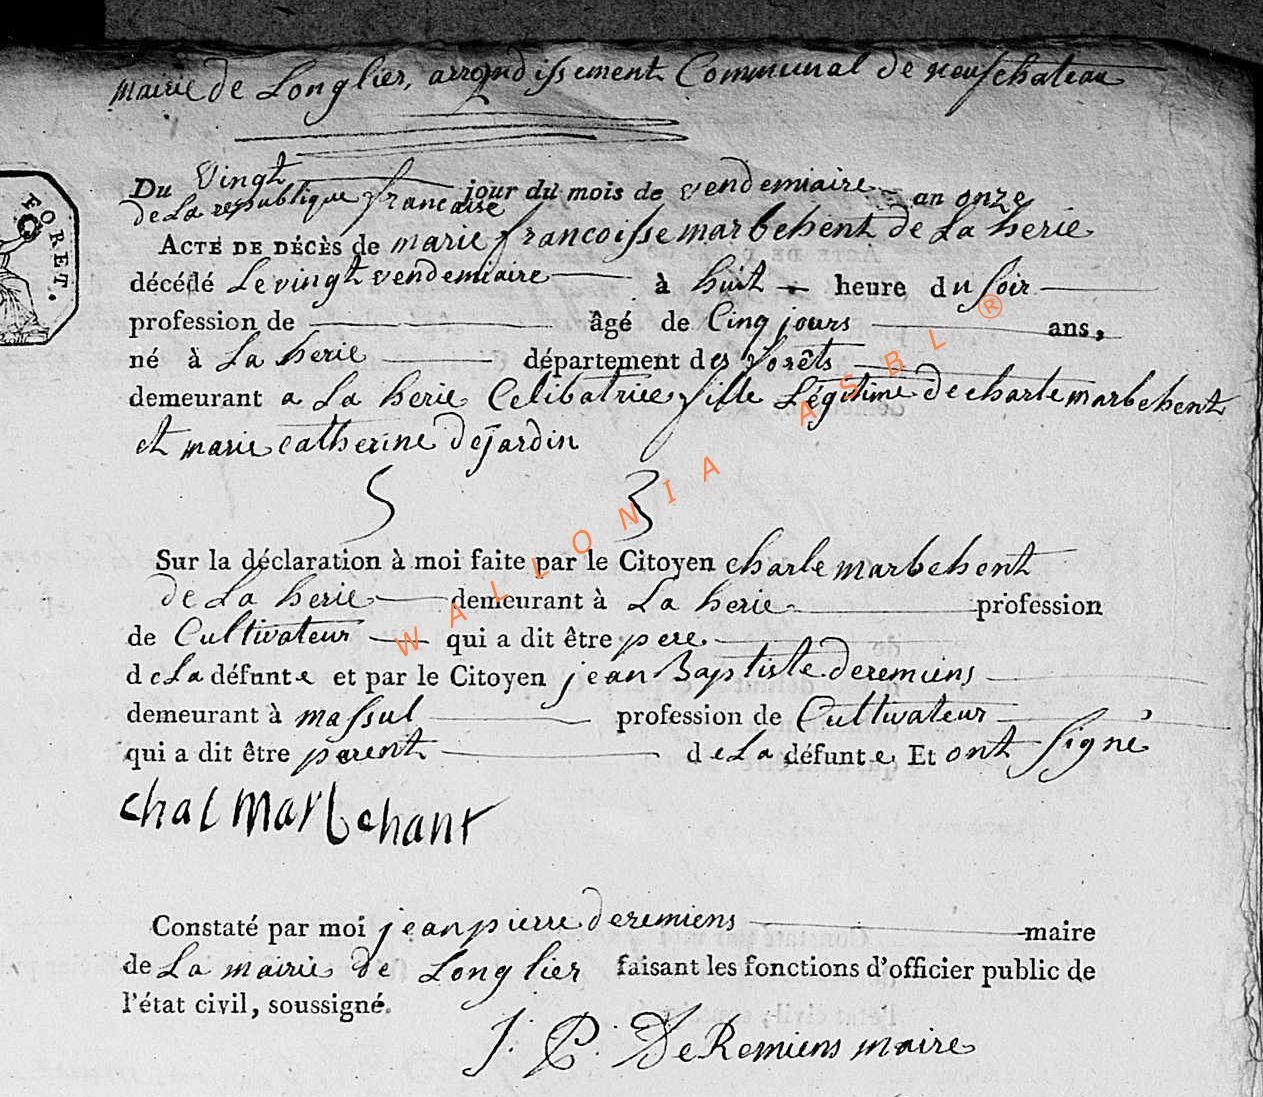 Mairie de Longlier, arrondissement Communal de neufchateau
Du Vingt jour du mois de vendemiaire an onze
de La republique francaise
ACTE DE DÉCÈS de marie francoisse marbehent de La herie
décédé Le vingt vendemiaire à huit heure du soir
profession de âgé de Cinq jours ans,
né à La herie département des forêts
demeurant a La herie Celibatrice fille Légitime de charle marbehent
et marie catherine dejardin
Sur la déclaration à moi faite par le Citoyen charle marbehent
de La herie demeurant à La herie profession
de Cultivateur qui a dit être pere
de La défunte et par le Citoyen jean Baptiste deremiens
demeurant à massul profession de Cultivateur
qui a dit être parent de La défunte Et ont signé
chal Marbchant
Constaté par moi jean pierre deremiens maire
de La mairie de Longlier faisant les fonctions d'officier public de
l'état civil, soussigné.
J. P. DeRemiens maire
FORET.
WALLONIA ASBL ®